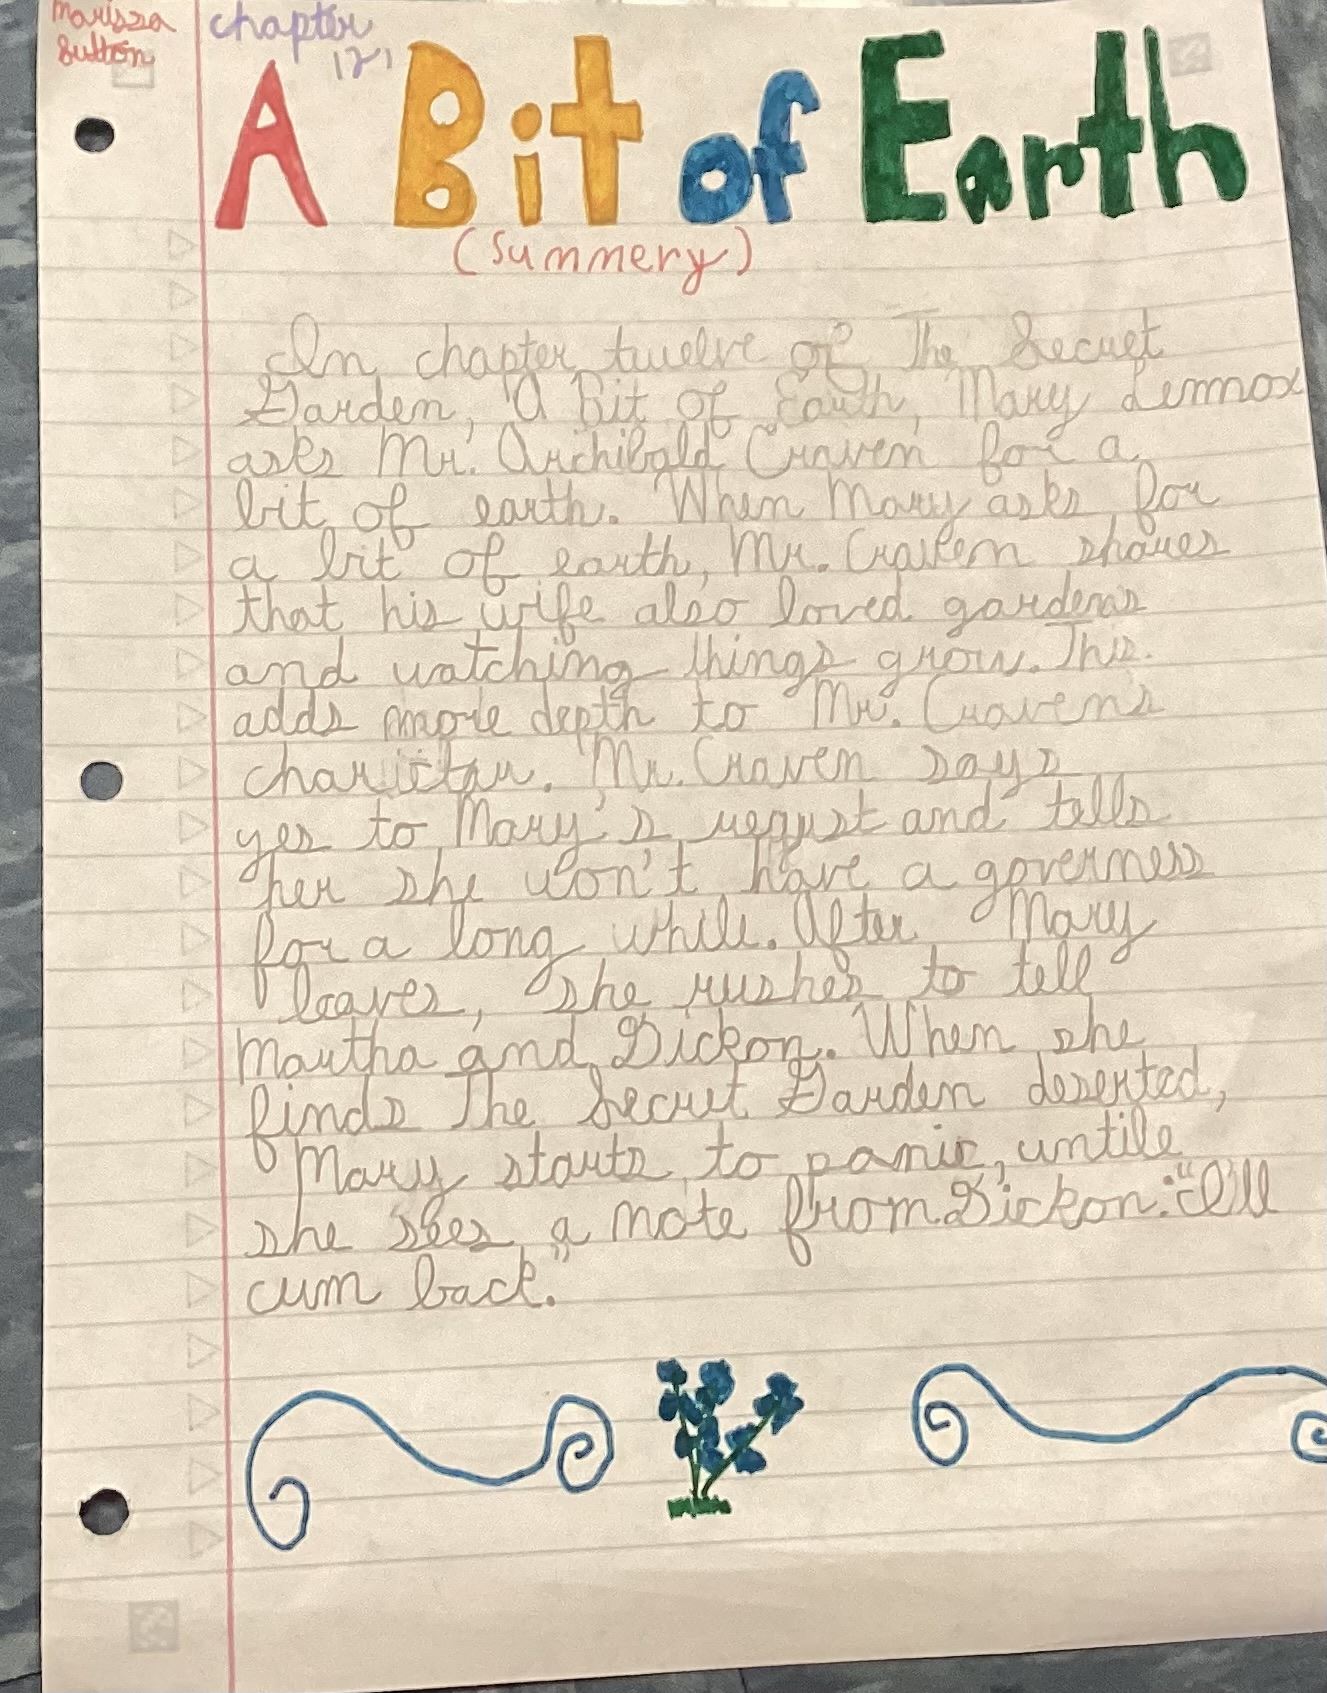 Marissa
Sutton
Chapter
12
A Bit of Earth
(Summery)
In chapter twelve of The Secret
Garden, A Bit of Earth, Mary Lennox
asks Mr. Archibald Craven for a
bit of earth. When Mary asks for
a bit of earth, Mr. Craven shares
that his wife also loved gardens
and watching things grow. This
adds more depth to Mr. Craven's
charictar. Mr. Craven says
yes to Mary's requst and tells
her she won't have a governess
for a long while. After Mary
leaves, she rushes to tell
Martha and Dickon. When she
finds The Secret Garden deserted,
Mary starts to panic, untile
she sees a note from Dickon: "I'll
cum back."